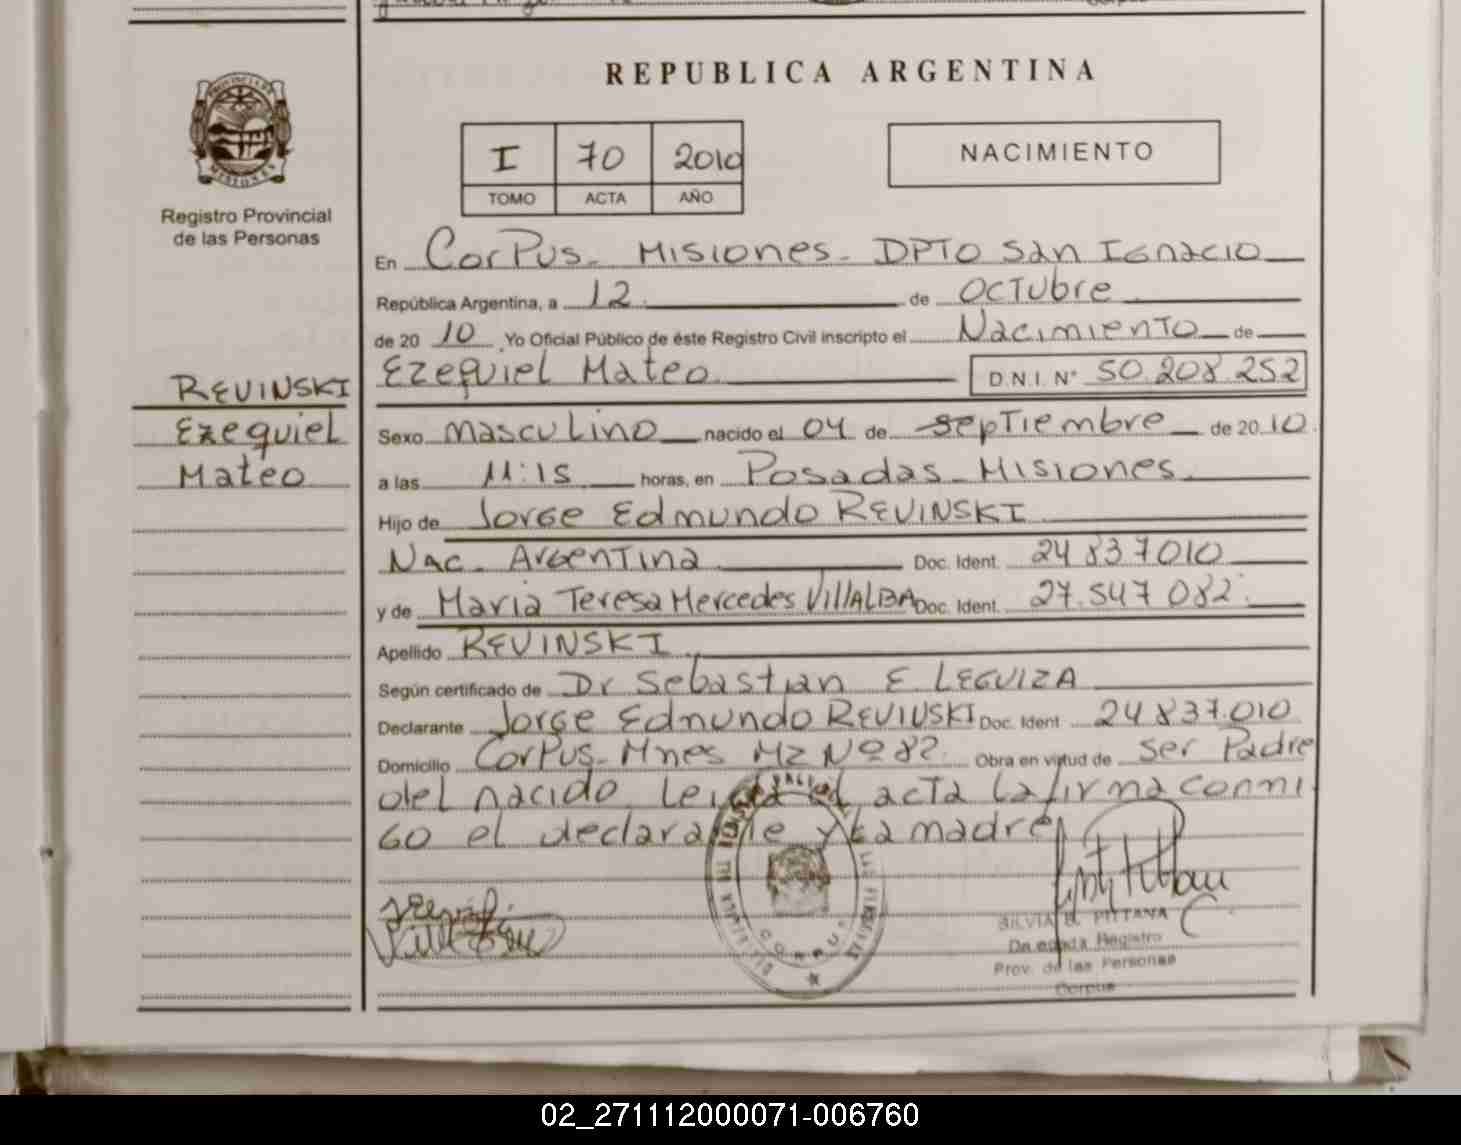 REPUBLICA ARGENTINA
PROVINCIA DE
MISIONES
Registro Provincial
de las Personas
I 70 2010
TOMO ACTA AÑO
NACIMIENTO
En CorPus - Misiones - DPTO San Ignacio
República Argentina, a 12 de Octubre
de 20 10 Yo Oficial Público de éste Registro Civil inscripto el Nacimiento de
Ezequiel Mateo D.N.I. N° 50.208.252
REVINSKI
Ezequiel
Mateo
Sexo masculino nacido el 04 de septiembre de 20 10
a las 11:15 horas, en Posadas - Misiones
Hijo de Jorge Edmundo REVINSKI
Nac. Argentina Doc. Ident. 24 837010
y de Maria Teresa Mercedes VillALBA Doc. Ident. 27.547 082
Apellido REVINSKI
Según certificado de Dr Sebastian E. LEGUIZA
Declarante Jorge Edmundo REVINSKI Doc. Ident. 24 837.010
Domicilio CorPus - Mnes Mz Nº 82 Obra en virtud de ser Padre
del nacido. Leida el acta la firma conmi
go el declarante y la madre
SILVIA PITTANA
Registro
Prov. de las Personas
Corpus
02_271112000071-006760